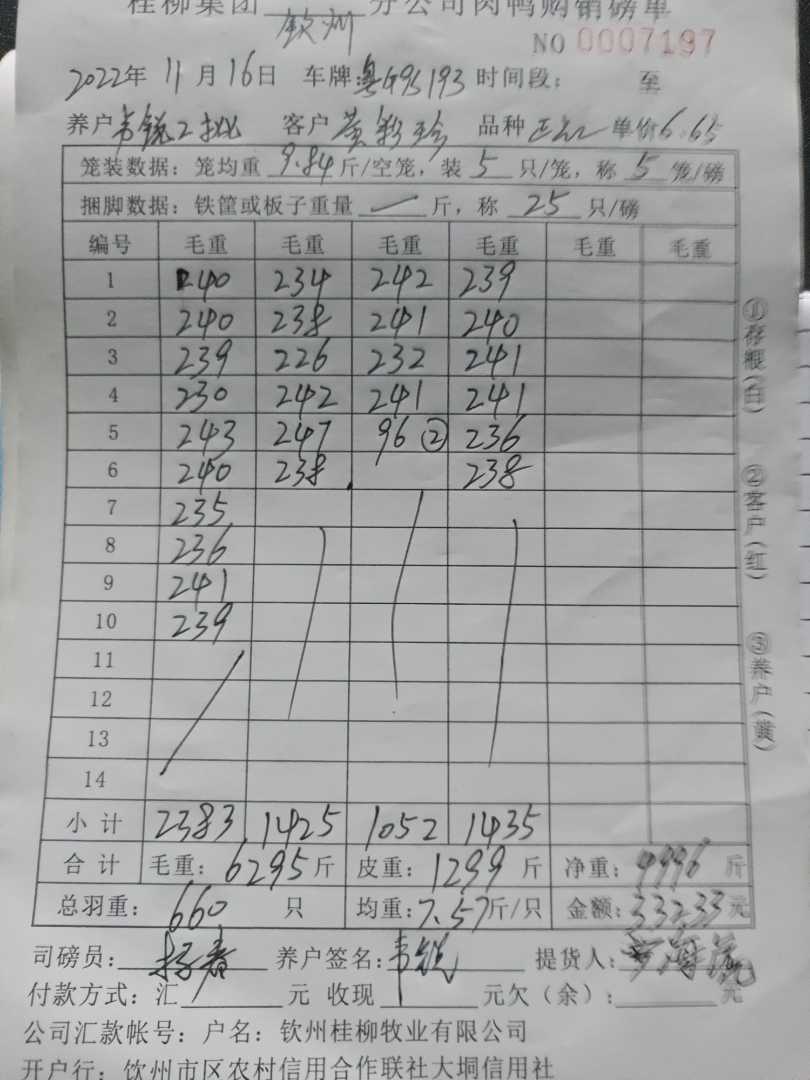 桂柳集团 钦州 分公司肉鸭购销磅单
NO 0007197
2022年 11月16日 车牌:粤G95193 时间段: 至
养户 韦锐2批 客户 黄彩珍 品种 单价6.65
笼装数据: 笼均重 9.84 斤/空笼, 装 5 只/笼, 称 5 笼/磅
捆脚数据: 铁筐或板子重量 一 斤, 称 25 只/磅
编号 毛重 毛重 毛重 毛重 毛重 毛重
1 240 234 242 239
2 240 238 241 240
3 239 226 232 241
4 230 242 241 241
5 243 247 96② 236
6 240 238 238
7 235
8 236
9 241
10 239
11
12
13
14
小计 2383 1425 1052 1435
合计 毛重: 6295斤 皮重: 1299斤 净重: 4996斤
总羽重: 660 只 均重: 7.57斤/只 金额: 33233元
司磅员: 养户签名: 韦锐 提货人:
付款方式: 汇 元 收现 元欠(余): 元
公司汇款帐号: 户名: 钦州桂柳牧业有限公司
开户行: 钦州市区农村信用合作联社大垌信用社
①存根(白)
②客户(红)
③养户(黄)